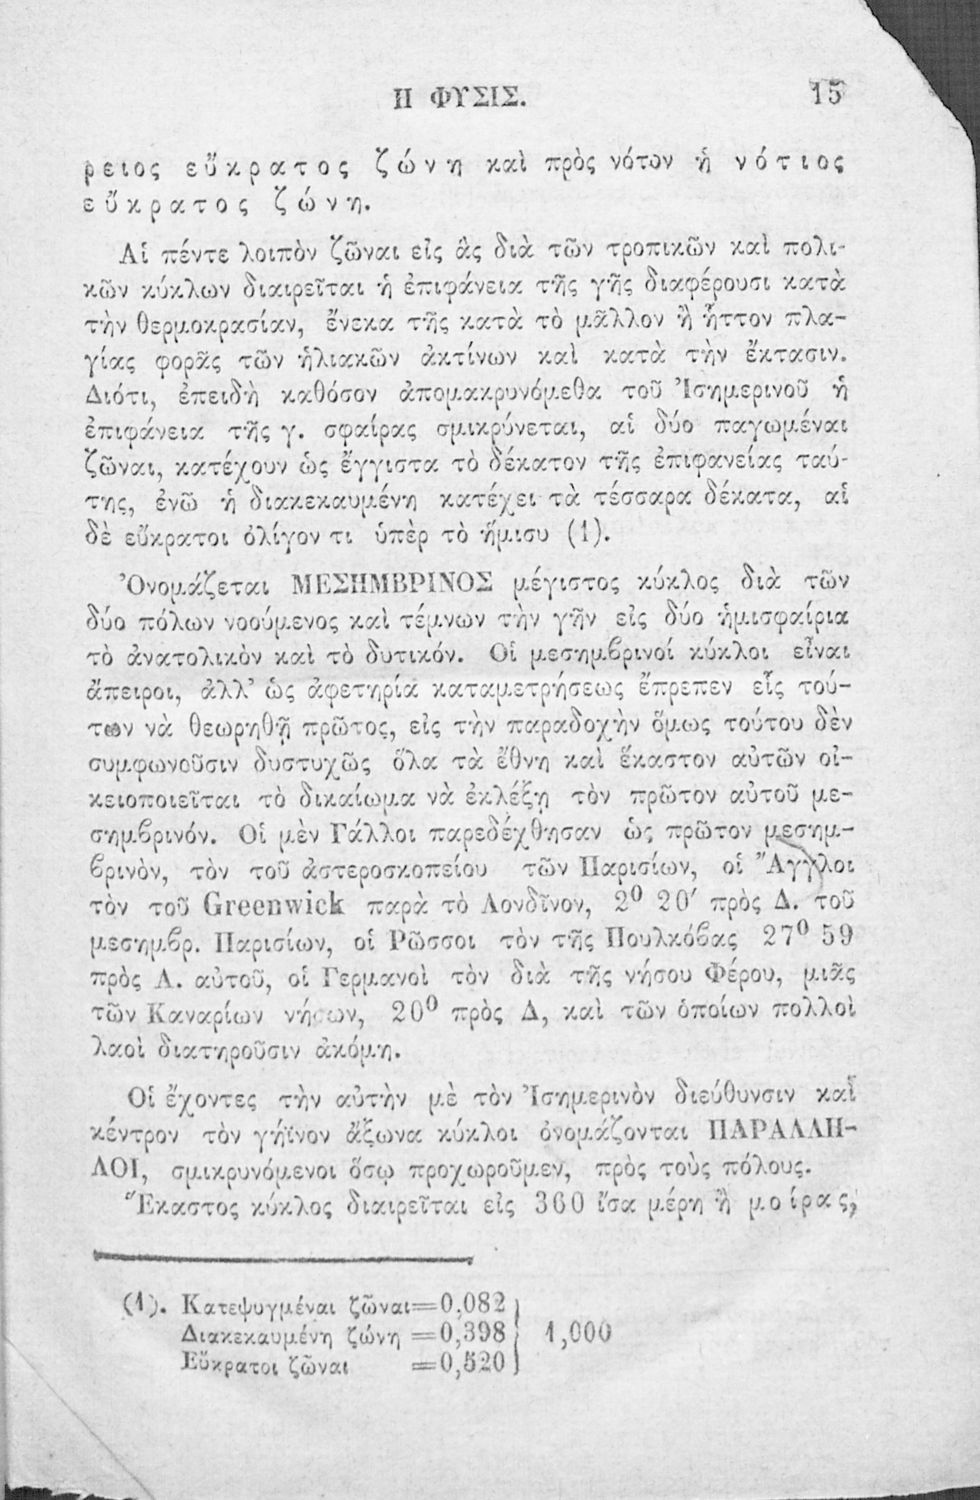 Η ΦΥΣΙΣ. 15
ρειος εὔκρατος ζώνη καὶ πρὸς νότον ἡ νότιος
εὔκρατος ζώνη.
Αἱ πέντε λοιπὸν ζῶναι εἰς ἃς διὰ τῶν τροπικῶν καὶ πολι-
κῶν κύκλων διαιρεῖται ἡ ἐπιφάνεια τῆς γῆς διαφέρουσι κατὰ
τὴν θερμοκρασίαν, ἕνεκα τῆς κατὰ τὸ μᾶλλον ἢ ἧττον πλα-
γίας φορᾶς τῶν ἡλιακῶν ἀκτίνων καὶ κατὰ τὴν ἔκτασιν.
Διότι, ἐπειδὴ καθόσον ἀπομακρυνόμεθα τοῦ Ἰσημερινοῦ ἡ
ἐπιφάνεια τῆς γ. σφαίρας σμικρύνεται, αἱ δύο παγωμέναι
ζῶναι, κατέχουν ὡς ἔγγιστα τὸ δέκατον τῆς ἐπιφανείας ταύ-
της, ἐνῶ ἡ διακεκαυμένη κατέχει τὰ τέσσαρα δέκατα, αἱ
δὲ εὔκρατοι ὀλίγον τι ὑπὲρ τὸ ἥμισυ (1).
Ὀνομάζεται ΜΕΣΗΜΒΡΙΝΟΣ μέγιστος κύκλος διὰ τῶν
δύο πόλων νοούμενος καὶ τέμνων τὴν γῆν εἰς δύο ἡμισφαίρια
τὸ ἀνατολικὸν καὶ τὸ δυτικόν. Οἱ μεσημβρινοί κύκλοι εἶναι
ἄπειροι, ἀλλ' ὡς ἀφετηρία καταμετρήσεως ἔπρεπεν εἷς τού-
των νὰ θεωρηθῇ πρῶτος, εἰς τὴν παραδοχὴν ὅμως τούτου δὲν
συμφωνοῦσιν δυστυχῶς ὅλα τὰ ἔθνη καὶ ἕκαστον αὐτῶν οἰ-
κειοποιεῖται τὸ δικαίωμα νὰ ἐκλέξῃ τὸν πρῶτον αὐτοῦ με-
σημβρινόν. Οἱ μὲν Γάλλοι παρεδέχθησαν ὡς πρῶτον μεσημ-
βρινὸν, τὸν τοῦ ἀστεροσκοπείου τῶν Παρισίων, οἱ Ἄγγλοι
τὸν τοῦ Greenwick παρὰ τὸ Λονδῖνον, 2⁰ 20′ πρὸς Δ. τοῦ
μεσημβρ. Παρισίων, οἱ Ῥῶσσοι τὸν τῆς Πουλκόβας 27⁰ 59
πρὸς Α. αὐτοῦ, οἱ Γερμανοὶ τὸν διὰ τῆς νήσου Φέρου, μιᾶς
τῶν Καναρίων νήσων, 20⁰ πρὸς Δ, καὶ τῶν ὁποίων πολλοὶ
λαοὶ διατηροῦσιν ἀκόμη.
Οἱ ἔχοντες τὴν αὐτὴν μὲ τὸν Ἰσημερινὸν διεύθυνσιν καὶ
κέντρον τὸν γήϊνον ἄξωνα κύκλοι ὀνομάζονται ΠΑΡΑΛΛΗ-
ΛΟΙ, σμικρυνόμενοι ὅσῳ προχωροῦμεν, πρὸς τοὺς πόλους.
Ἕκαστος κύκλος διαιρεῖται εἰς 360 ἴσα μέρη ἢ μοίρας,
(1). Κατεψυγμέναι ζῶναι=0,082
Διακεκαυμένη ζώνη =0,398 } 1,000
Εὔκρατοι ζῶναι =0,520